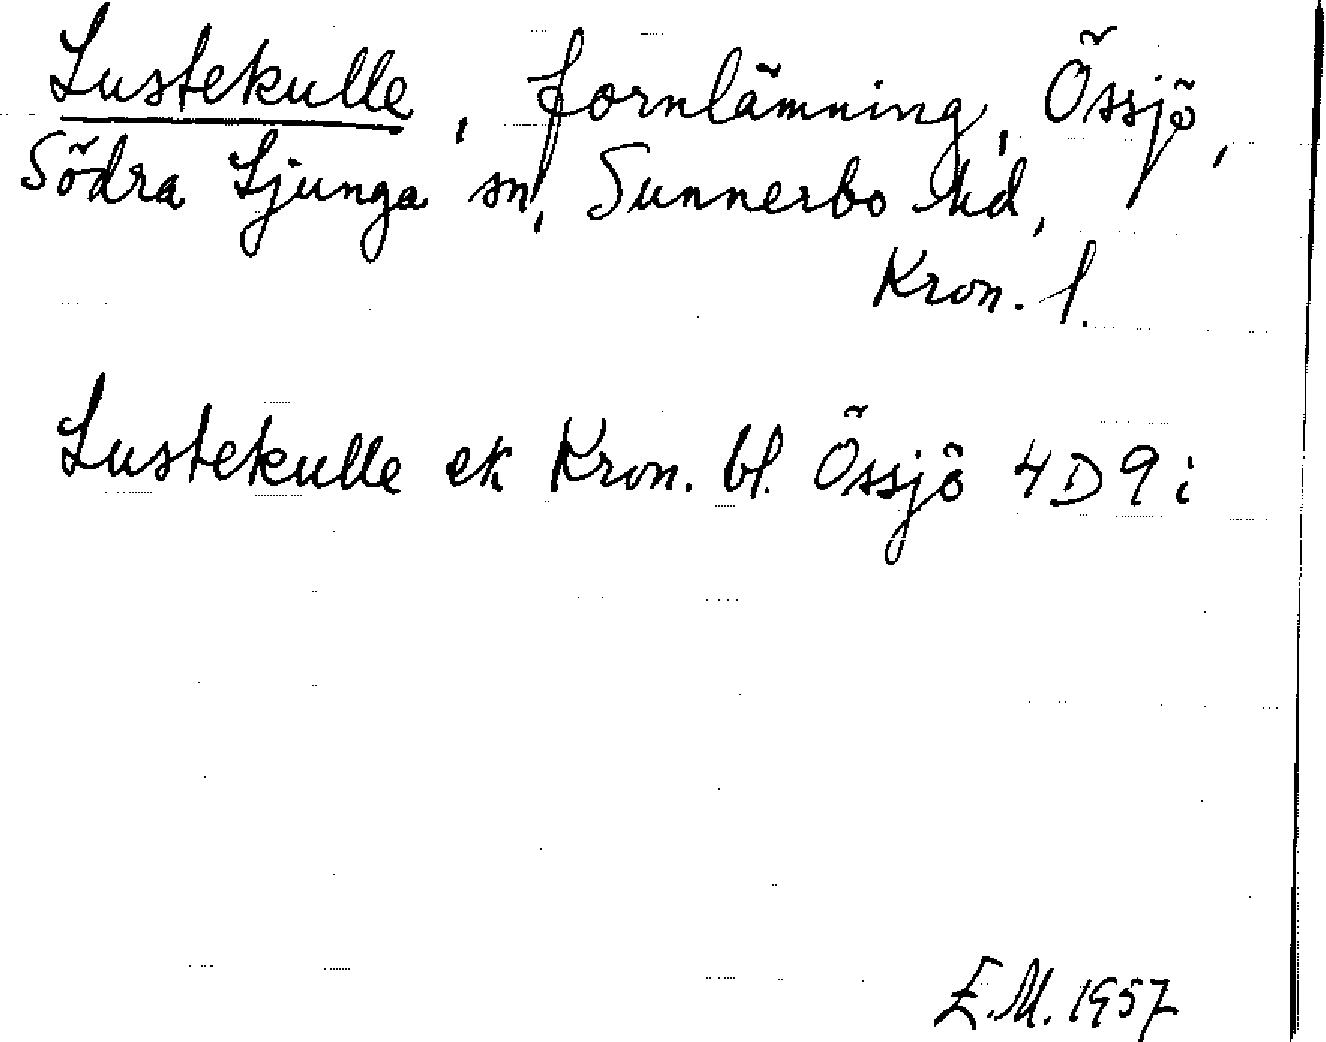 Lustekulle, fornlämning, Össjö,
Södra Ljunga sn, Sunnerbo hd,
Kron. l.
Lustekulle ek Kron. bl. Össjö 4D9i
E.M. 1957